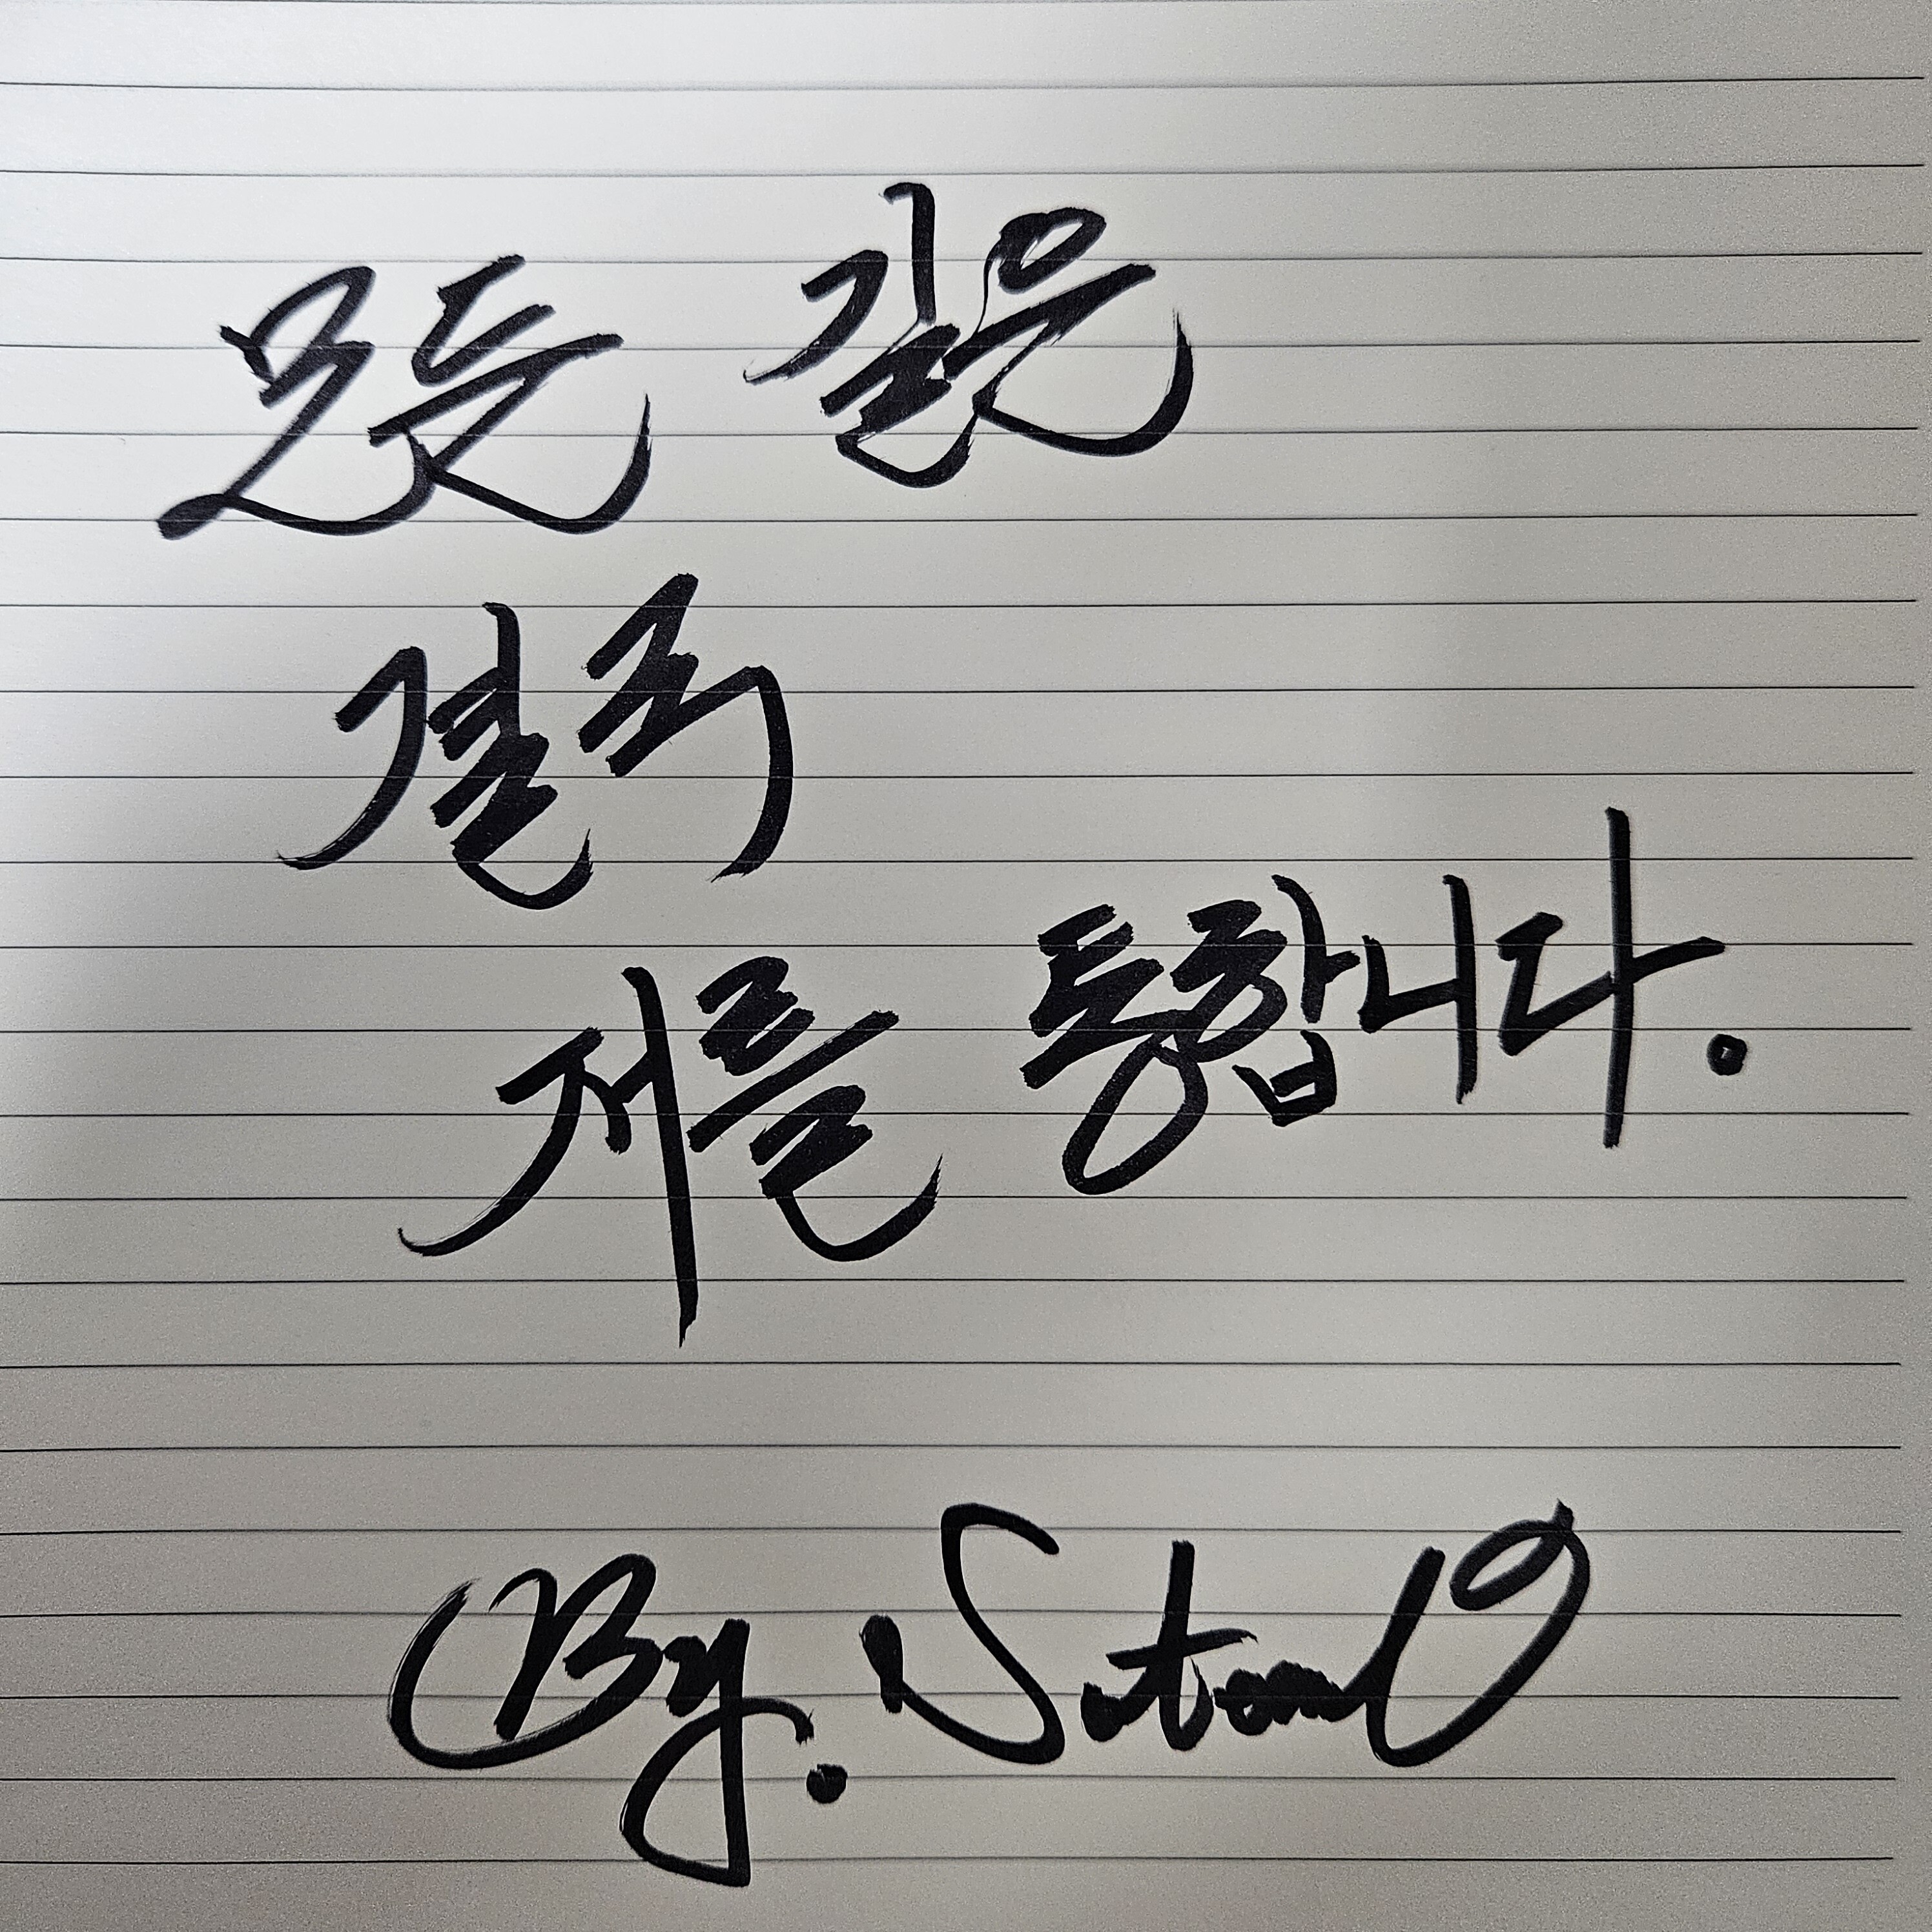 모든 길은
결국
저를 통합니다.
By.